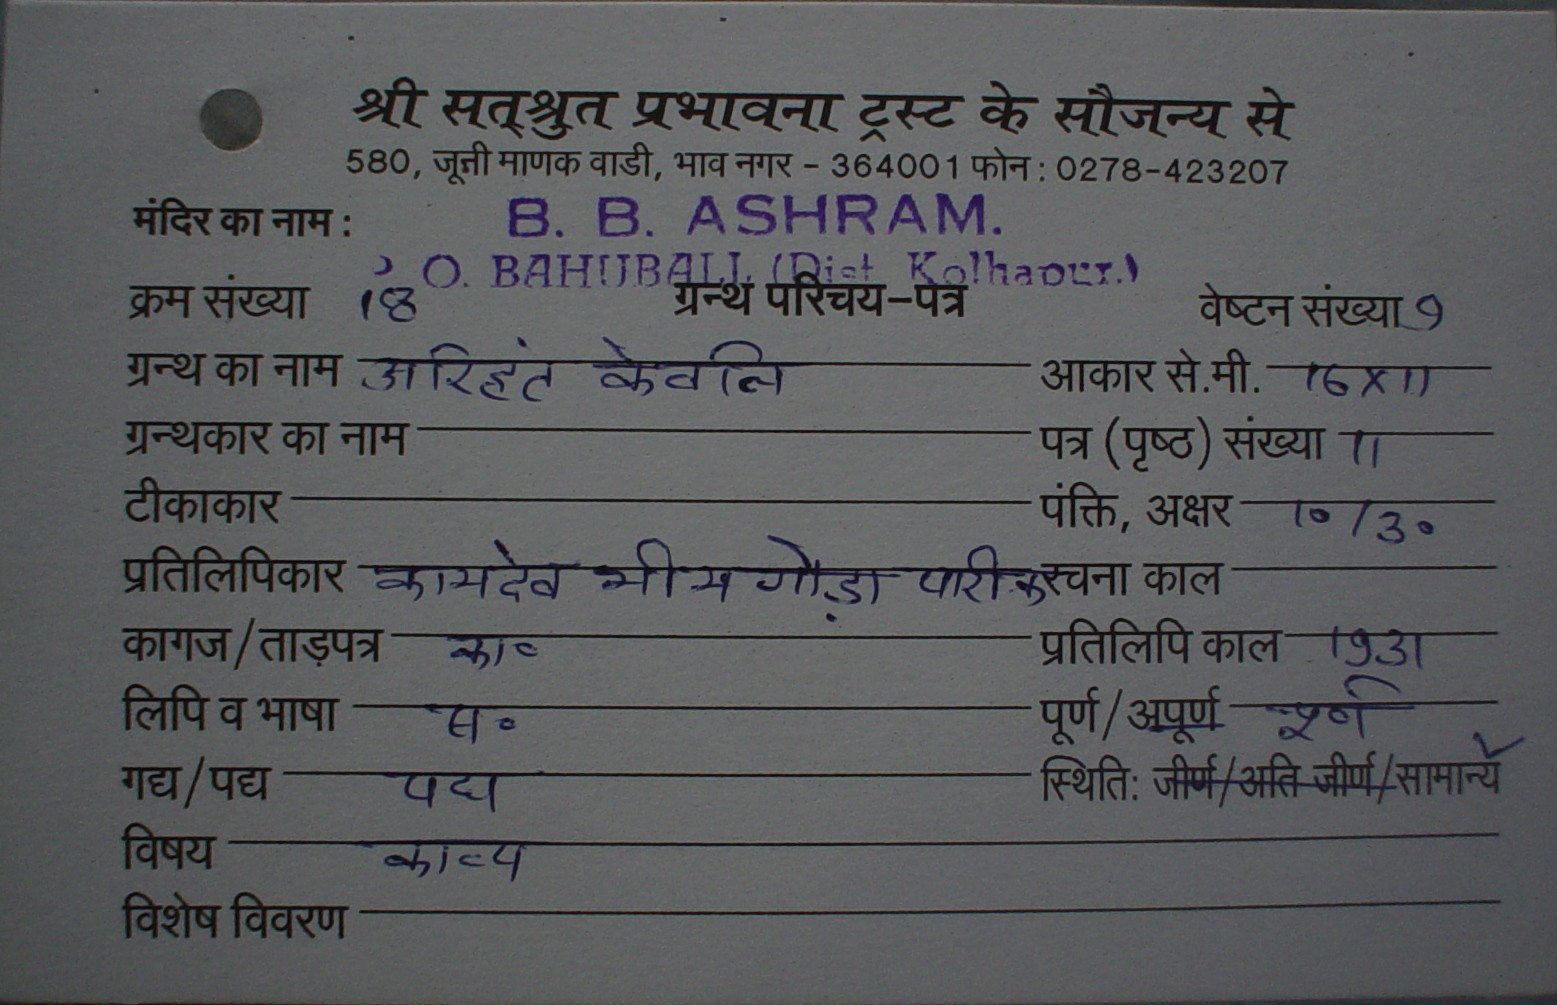 श्री सत्‌श्रुत प्रभावना ट्रस्ट के सौजन्य से
580, जूनी माणक वाडी, भाव नगर - 364001 फोन : 0278-423207
मंदिर का नाम : B. B. ASHRAM.
O. BAHUBALI, (Dist. Kolhapur.)
क्रम संख्या 18 ग्रन्थ परिचय-पत्र वेष्टन संख्या 9
ग्रन्थ का नाम अरिहंत केवलि आकार से.मी. 16 X 11
ग्रन्थकार का नाम पत्र (पृष्ठ) संख्या 11
टीकाकार पंक्ति, अक्षर १०/३०
प्रतिलिपिकार कामदेव भीम गौड़ा पारीक रचना काल
कागज/ताड़पत्र का० प्रतिलिपि काल 1931
लिपि व भाषा स० पूर्ण/अपूर्ण पूर्ण
गद्य/पद्य पद्य स्थिति: जीर्ण/अति जीर्ण/सामान्य
विषय काव्य
विशेष विवरण